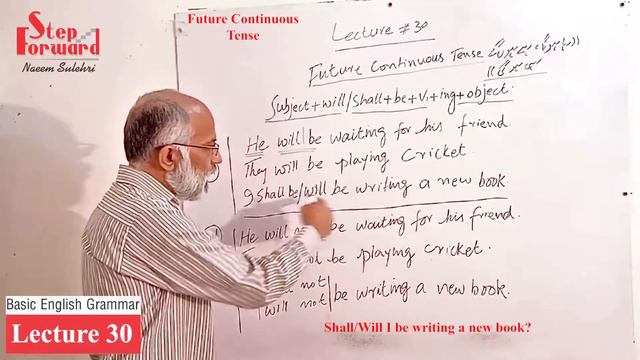 Step
Forward
Naeem Sulehri
Future Continuous
Tense
Lecture # 30
Future Continuous Tense
Subject + will/shall + be + V1 + ing + object.
He will be waiting for his friend
They will be playing Cricket
I Shall be/will be writing a new book.
He will be waiting for his friend.
be playing Cricket.
not
will not be writing a new book.
Basic English Grammar
Lecture 30
Shall/Will I be writing a new book?